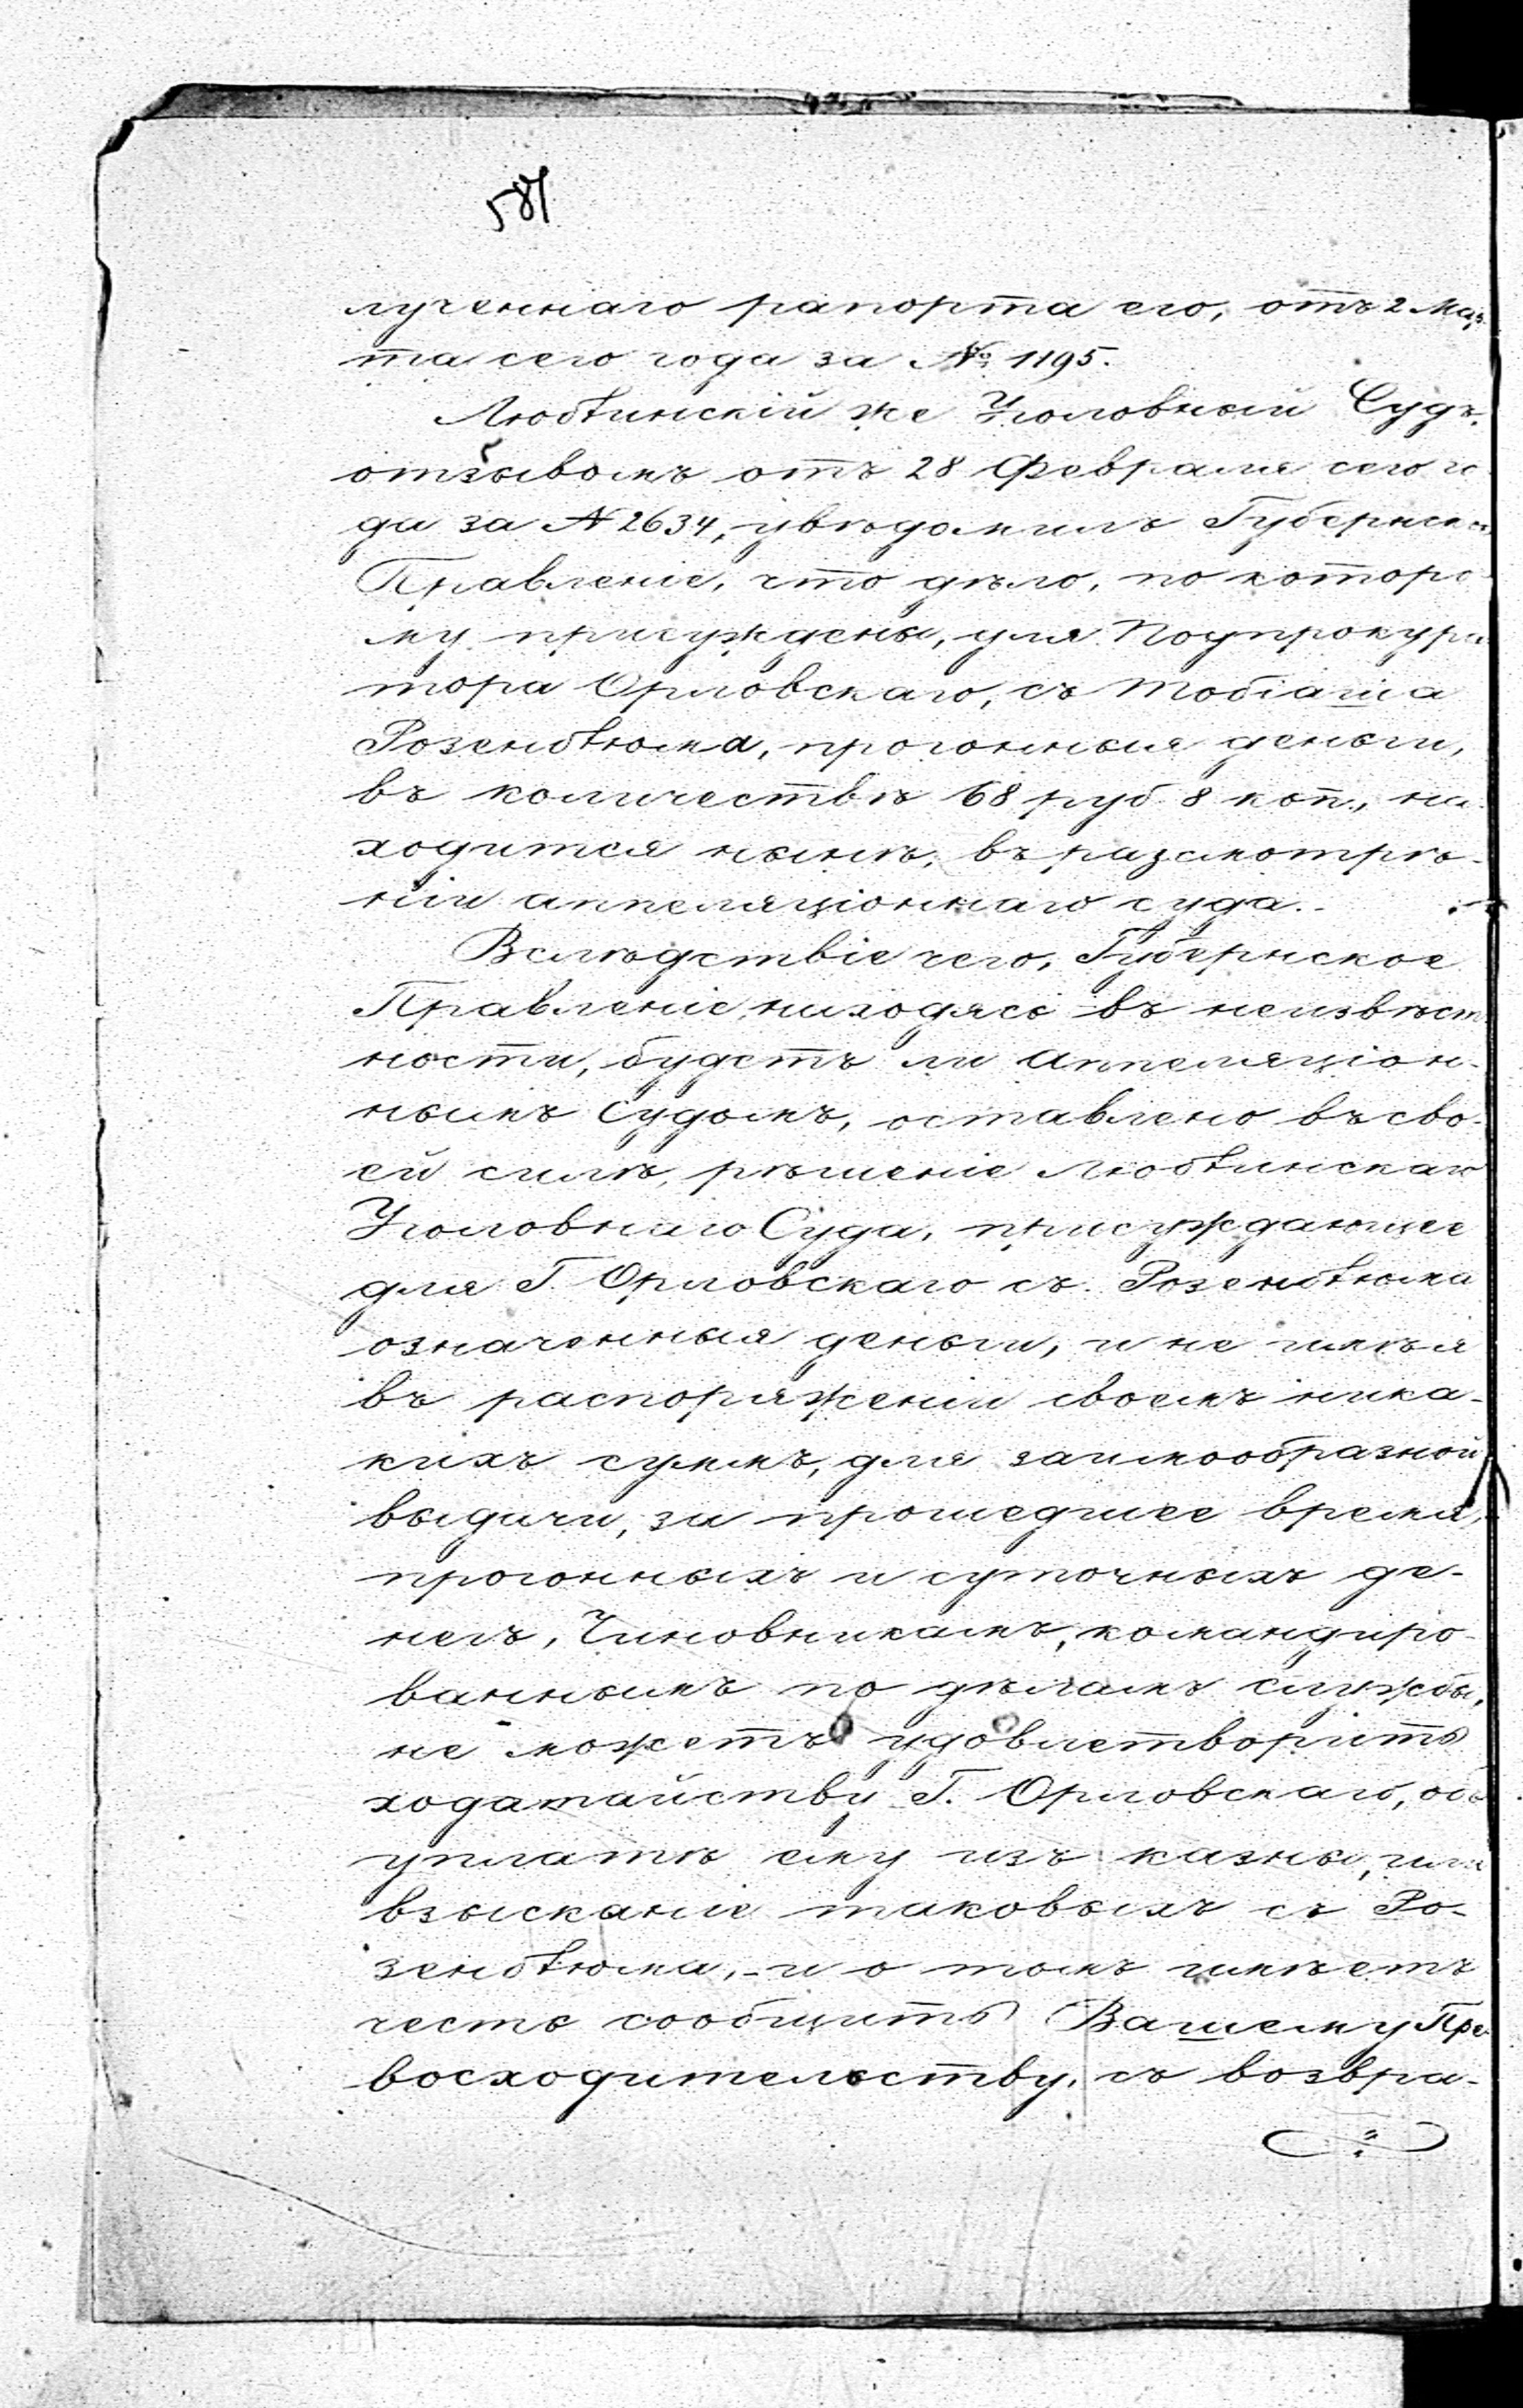 587
лученнаго рапорта его, отъ 2 Мар-
та сего года за № 1195.
Люблинскій же Уголовный Судъ,
отзывомъ отъ 28 Февраля сего го
да за № 2634, увѣдомилъ Губернское
Правленіе, что дѣло, по которо-
му присуждены, для Подпрокура
тора Орловскаго, съ Тобіаша
Розенблюма, прогонныя деньги,
въ количествѣ 68 руб. 8 коп., на-
ходится нынѣ, въ разсмотрѣ-
ніи аппеляціоннаго суда.
Вслѣдствіе чего, Губернское
Правленіе, находясь въ неизвѣст
ности, будетъ ли Аппеляціон-
нымъ Судомъ, оставлено въ сво-
ей силѣ, рѣшеніе Люблинскаго
Уголовнаго Суда, присуждающее
для Г. Орловскаго съ Розенблюма
означенныя деньги, и не имѣя
въ распоряженіи своемъ ника-
кихъ суммъ, для заимообразной
выдачи, за прошедшее время,
прогонныхъ и суточныхъ де-
негъ, Чиновникамъ, командиро-
ваннымъ по дѣламъ службы,
не можетъ удовлетворить
ходатайству Г. Орловскаго, объ
уплатѣ ему изъ казны, или
взысканіе таковыхъ съ Ро-
зенблюма, - и о томъ имѣетъ
честь сообщить Вашему Пре
восходительству, съ возвра-